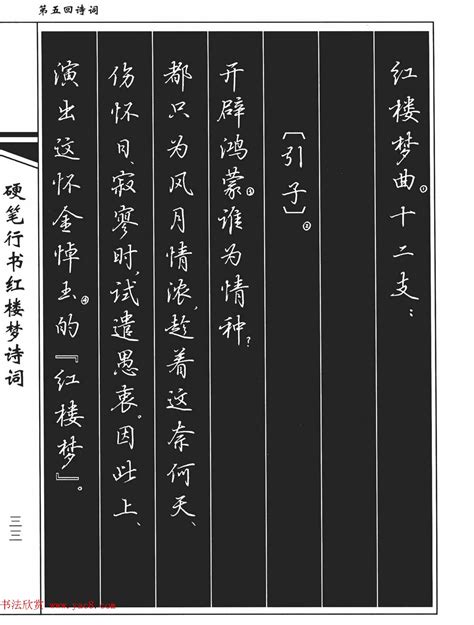 第五回诗词
红楼梦曲①十二支：
〔引子〕②
开辟鸿蒙③谁为情种？
都只为风月情浓，趁着这奈何天、
伤怀日、寂寥时，试遣愚衷。因此上、
演出这怀金悼玉④的『红楼梦』。
硬笔行书红楼梦诗词
三三
书法欣赏 www.yac8.com